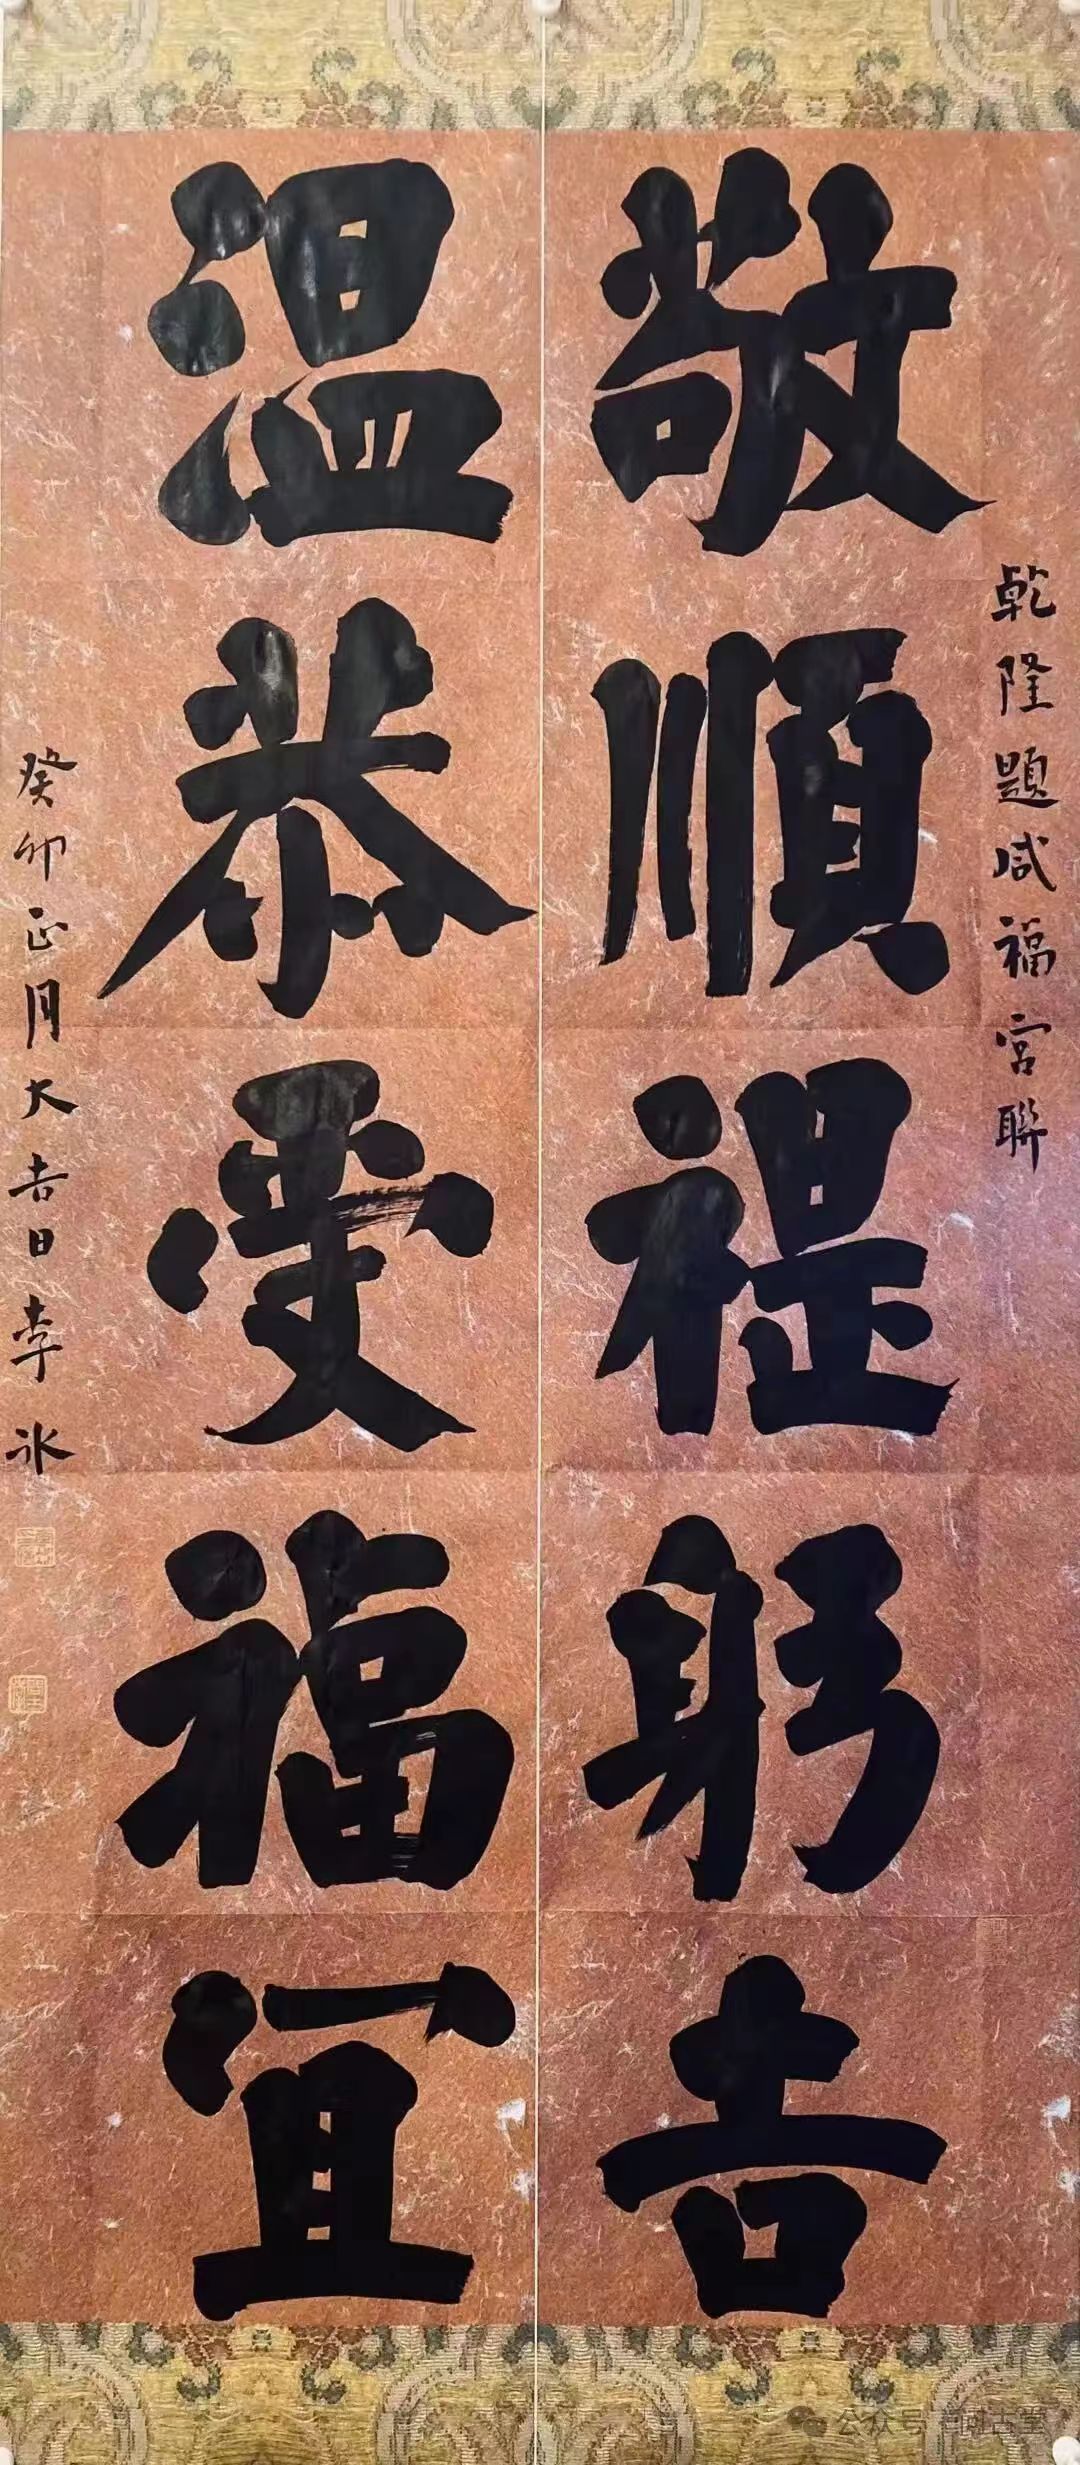 乾隆題咸福宮聯
敬順禔躬吉
溫恭受福宜
癸卯正月大吉日李冰
公众号